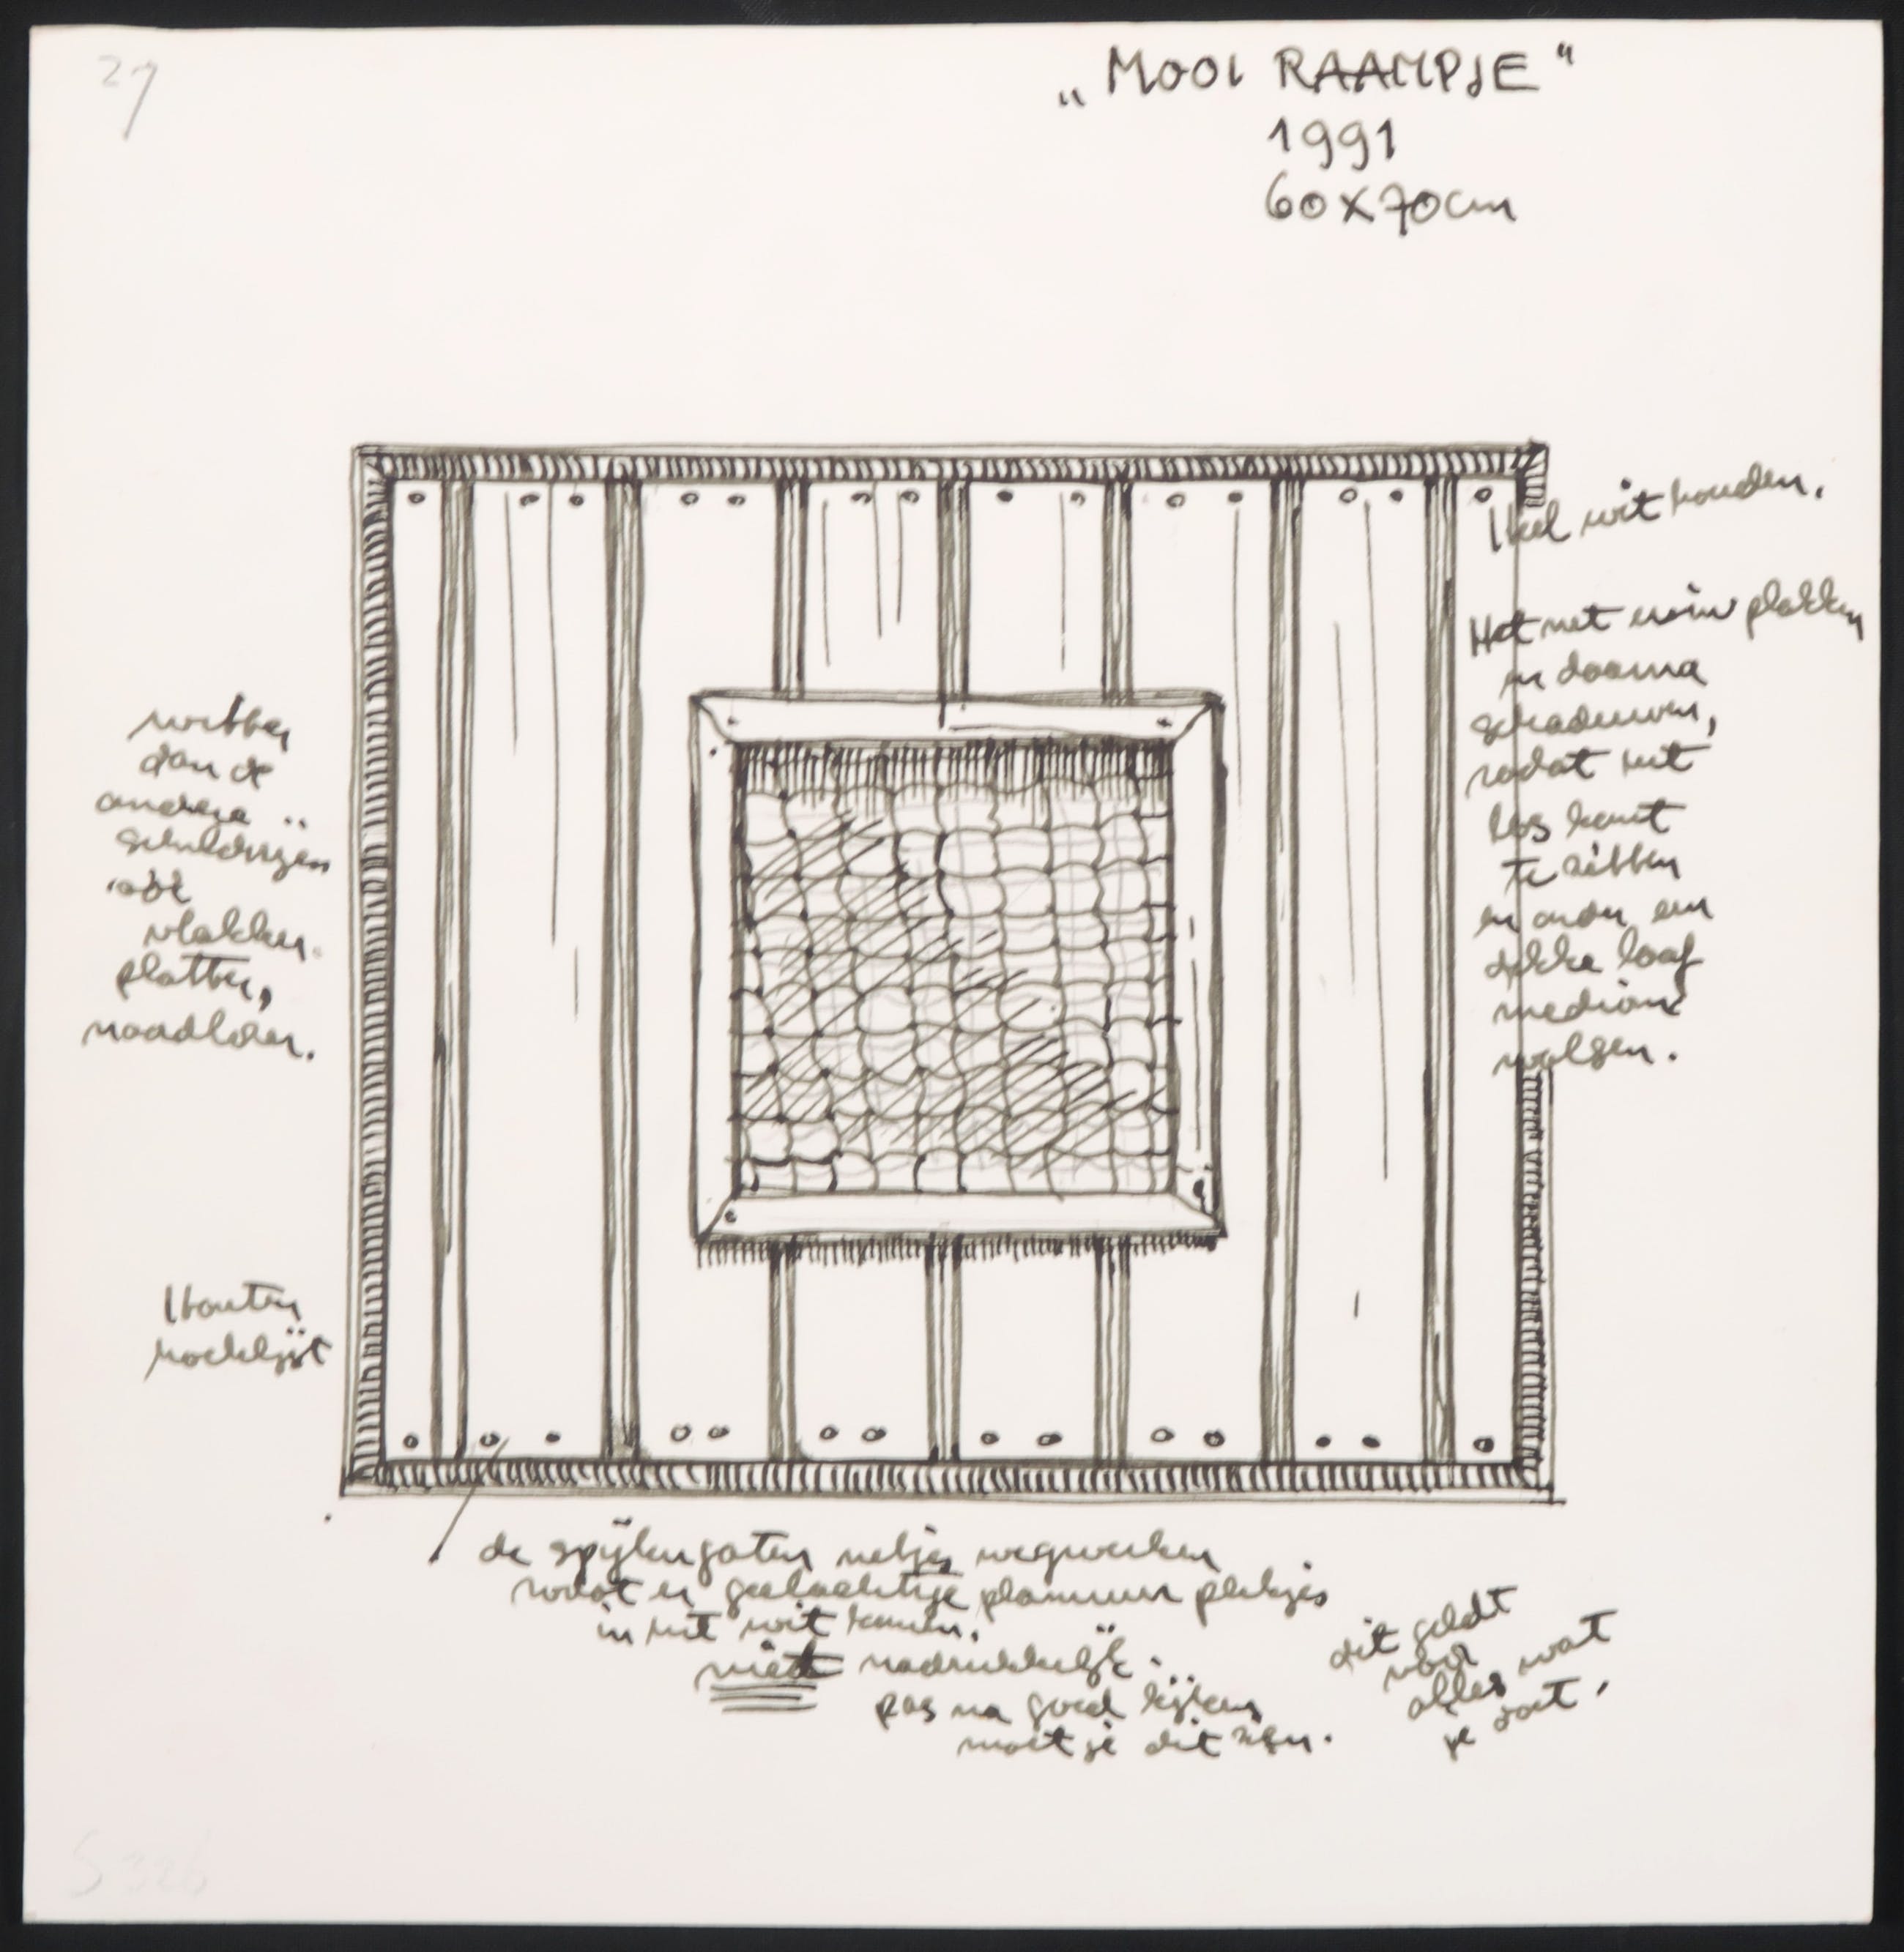 27
„MOOI RAAMPJE"
1991
60x70cm
Heel wit houden.
Het net erin plakken
en daarna
schaduwen,
zodat het
los komt
te zitten
en onder een
dikke laag
medium
walsen.
witter
dan de
andere
schilderijen
ook
vlakker.
platter,
naadloser.
Houten
hoeklijst
de spijkergaten netjes wegwerken
zodat er geelachtige plamuur plekjes
in het wit komen.
niet nadrukkelijk.
pas na goed kijken
moet je dit zien.
dit geldt
voor
alles wat
je doet.
S 326